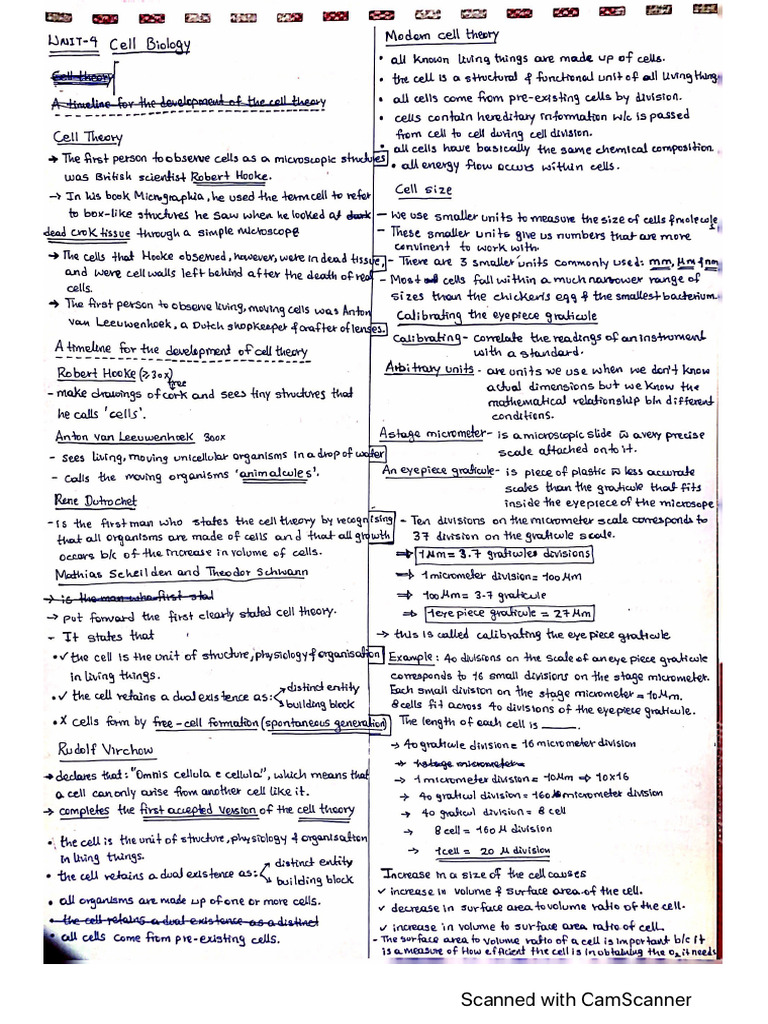 UNIT-4 Cell Biology
Cell theory
A timeline for the development of the cell theory
Cell Theory
→ The first person to observe cells as a microscopic structures
was British scientist Robert Hooke.
→ In his book Micrographia, he used the term cell to refer
to box-like structures he saw when he looked at dark
dead crok tissue through a simple microscope
→ The cells that Hooke observed, however, were in dead tissue,
and were cell walls left behind after the death of real
cells.
→ The first person to observe living, moving cells was Anton
van Leeuwenhoek, a Dutch shopkeeper & crafter of lenses.
A timeline for the development of cell theory
Robert Hooke (≥30x)
- make drawings of cork and sees tiny structures that
free
he calls 'cells'.
Anton van Leeuwenhoek 300x
- sees living, moving unicellular organisms in a drop of water
- calls the moving organisms 'animalcules'.
Rene Dutrochet
- is the first man who states the cell theory by recognising
that all organisms are made of cells and that all growth
occurs b/c of the increase in volume of cells.
Mathias Scheilden and Theodor Schwann
→ is the man who first stat
→ put forward the first clearly stated cell theory.
- It states that
• ✓ the cell is the unit of structure, physiology & organisation
in living things.
• ✓ the cell retains a dual existence as: distinct entity
building block
• X cells form by free-cell formation (spontaneous generation)
Rudolf Virchow
→ declares that: "Omnis cellula e cellula", which means that
a cell can only arise from another cell like it.
→ completes the first accepted version of the cell theory
• the cell is the unit of structure, physiology & organisation
in living things.
• the cell retains a dual existence as: distinct entity
building block
• all organisms are made up of one or more cells.
• the cell retains a dual existence as a distinct
• all cells come from pre-existing cells.
Modern cell theory
• all known living things are made up of cells.
• the cell is a structural & functional unit of all living thing
• all cells come from pre-existing cells by division.
• cells contain hereditary information w/c is passed
from cell to cell during cell division.
• all cells have basically the same chemical composition.
• all energy flow occurs within cells.
Cell size
- we use smaller units to measure the size of cells & molecule
- These smaller units give us numbers that are more
convinent to work with
- There are 3 smaller units commonly used: mm, μm & nm
- Most cells fall within a much narrower range of
sizes than the chicken's egg & the smallest bacterium.
Calibrating the eyepiece graticule
Calibrating - correlate the readings of an instrument
with a standard.
Arbitrary units - are units we use when we don't know
actual dimensions but we know the
mathematical relationship b/n different
conditions.
A stage micrometer - is a microscopic slide w̄ a very precise
scale attached onto it.
An eyepiece graticule - is piece of plastic w̄ less accurate
scales than the graticule that fits
inside the eyepiece of the microsope
- Ten divisions on the micrometer scale corresponds to
37 division on the graticule scale.
⇒ 1μm = 3.7 graticules divisions
⇒ 1 micrometer division = 100μm
⇒ 100μm = 3.7 graticule
⇒ 1 eye piece graticule = 27μm
→ this is called calibrating the eye piece graticule
Example: 40 divisions on the scale of an eye piece graticule
corresponds to 16 small divisions on the stage micrometer.
Each small division on the stage micrometer = 10μm.
8 cells fit across 40 divisions of the eyepiece graticule.
The length of each cell is ____.
→ 40 graticule division = 16 micrometer division
→ 1 stage micrometer =
→ 1 micrometer division = 10μm ⇒ 10x16
→ 40 graticul division = 160 micrometer division
→ 40 graticul division = 8 cell
→ 8 cell = 160 μ division
→ 1 cell = 20 μ division
Increase in a size of the cell causes
✓ increase in volume & surface area of the cell.
✓ decrease in surface area to volume ratio of the cell.
✓ increase in volume to surface area ratio of cell.
- The surface area to volume ratio of a cell is important b/c it
is a measure of How efficient the cell is in obtaining the O₂ it needs
Scanned with CamScanner